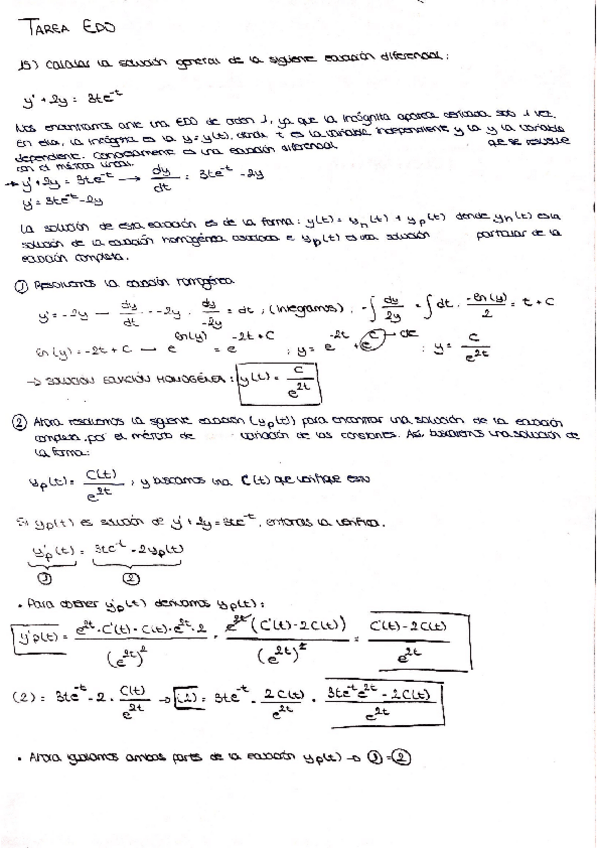 TAREA EDO
15) Calcular la solución general de la siguiente ecuación diferencial:
y' + 2y = 3te^-t
Nos encontramos ante una EDO de orden 1, ya que la incógnita aparece derivada solo 1 vez.
En ella, la incógnita es la y = y(t), donde t es la variable independiente y la y la variable
dependiente. Concretamente es una ecuación diferencial que se resuelve
con el método lineal.
→ y' + 2y = 3te^-t → dy/dt = 3te^-t - 2y
y' = 3te^-t - 2y
La solución de esta ecuación es de la forma: y(t) = yh(t) + yp(t) donde yh(t) es la
solución de la ecuación homogénea asociada e yp(t) es una solución particular de la
ecuación completa.
① Resolvemos la ecuación homogénea
y' = -2y — dy/dt = -2y · dy/-2y = dt ; (integramos) · -∫ dy/2y = ∫ dt · -ln(y)/2 = t + C
ln(y) = -2t + C — e^ln(y) = e^-2t+C ; y = e^-2t + e^C ; y = C/e^2t
→ SOLUCIÓN ECUACIÓN HOMOGÉNEA: y(t) = C/e^2t
② Ahora resolvemos la siguiente ecuación (yp(t)) para encontrar una solución de la ecuación
completa por el método de variación de las constantes. Así, buscaremos una solución de
la forma:
yp(t) = C(t)/e^2t , y buscamos una C(t) que verifique esto
Si yp(t) es solución de y' + 2y = 3te^-t, entonces la verifica.
y'p(t) = 3te^-t - 2yp(t)
① ②
• Para obtener y'p(t) derivamos yp(t):
y'p(t) = e^2t · C'(t) - C(t) · e^2t · 2/(e^2t)^2 = e^2t (C'(t) - 2C(t))/(e^2t)^2 = C'(t) - 2C(t)/e^2t
(2) = 3te^-t - 2 · C(t)/e^2t → (2) = 3te^-t - 2C(t)/e^2t = 3te^-t e^2t - 2C(t)/e^2t
• Ahora igualamos ambas partes de la ecuación yp(t) → ① = ②